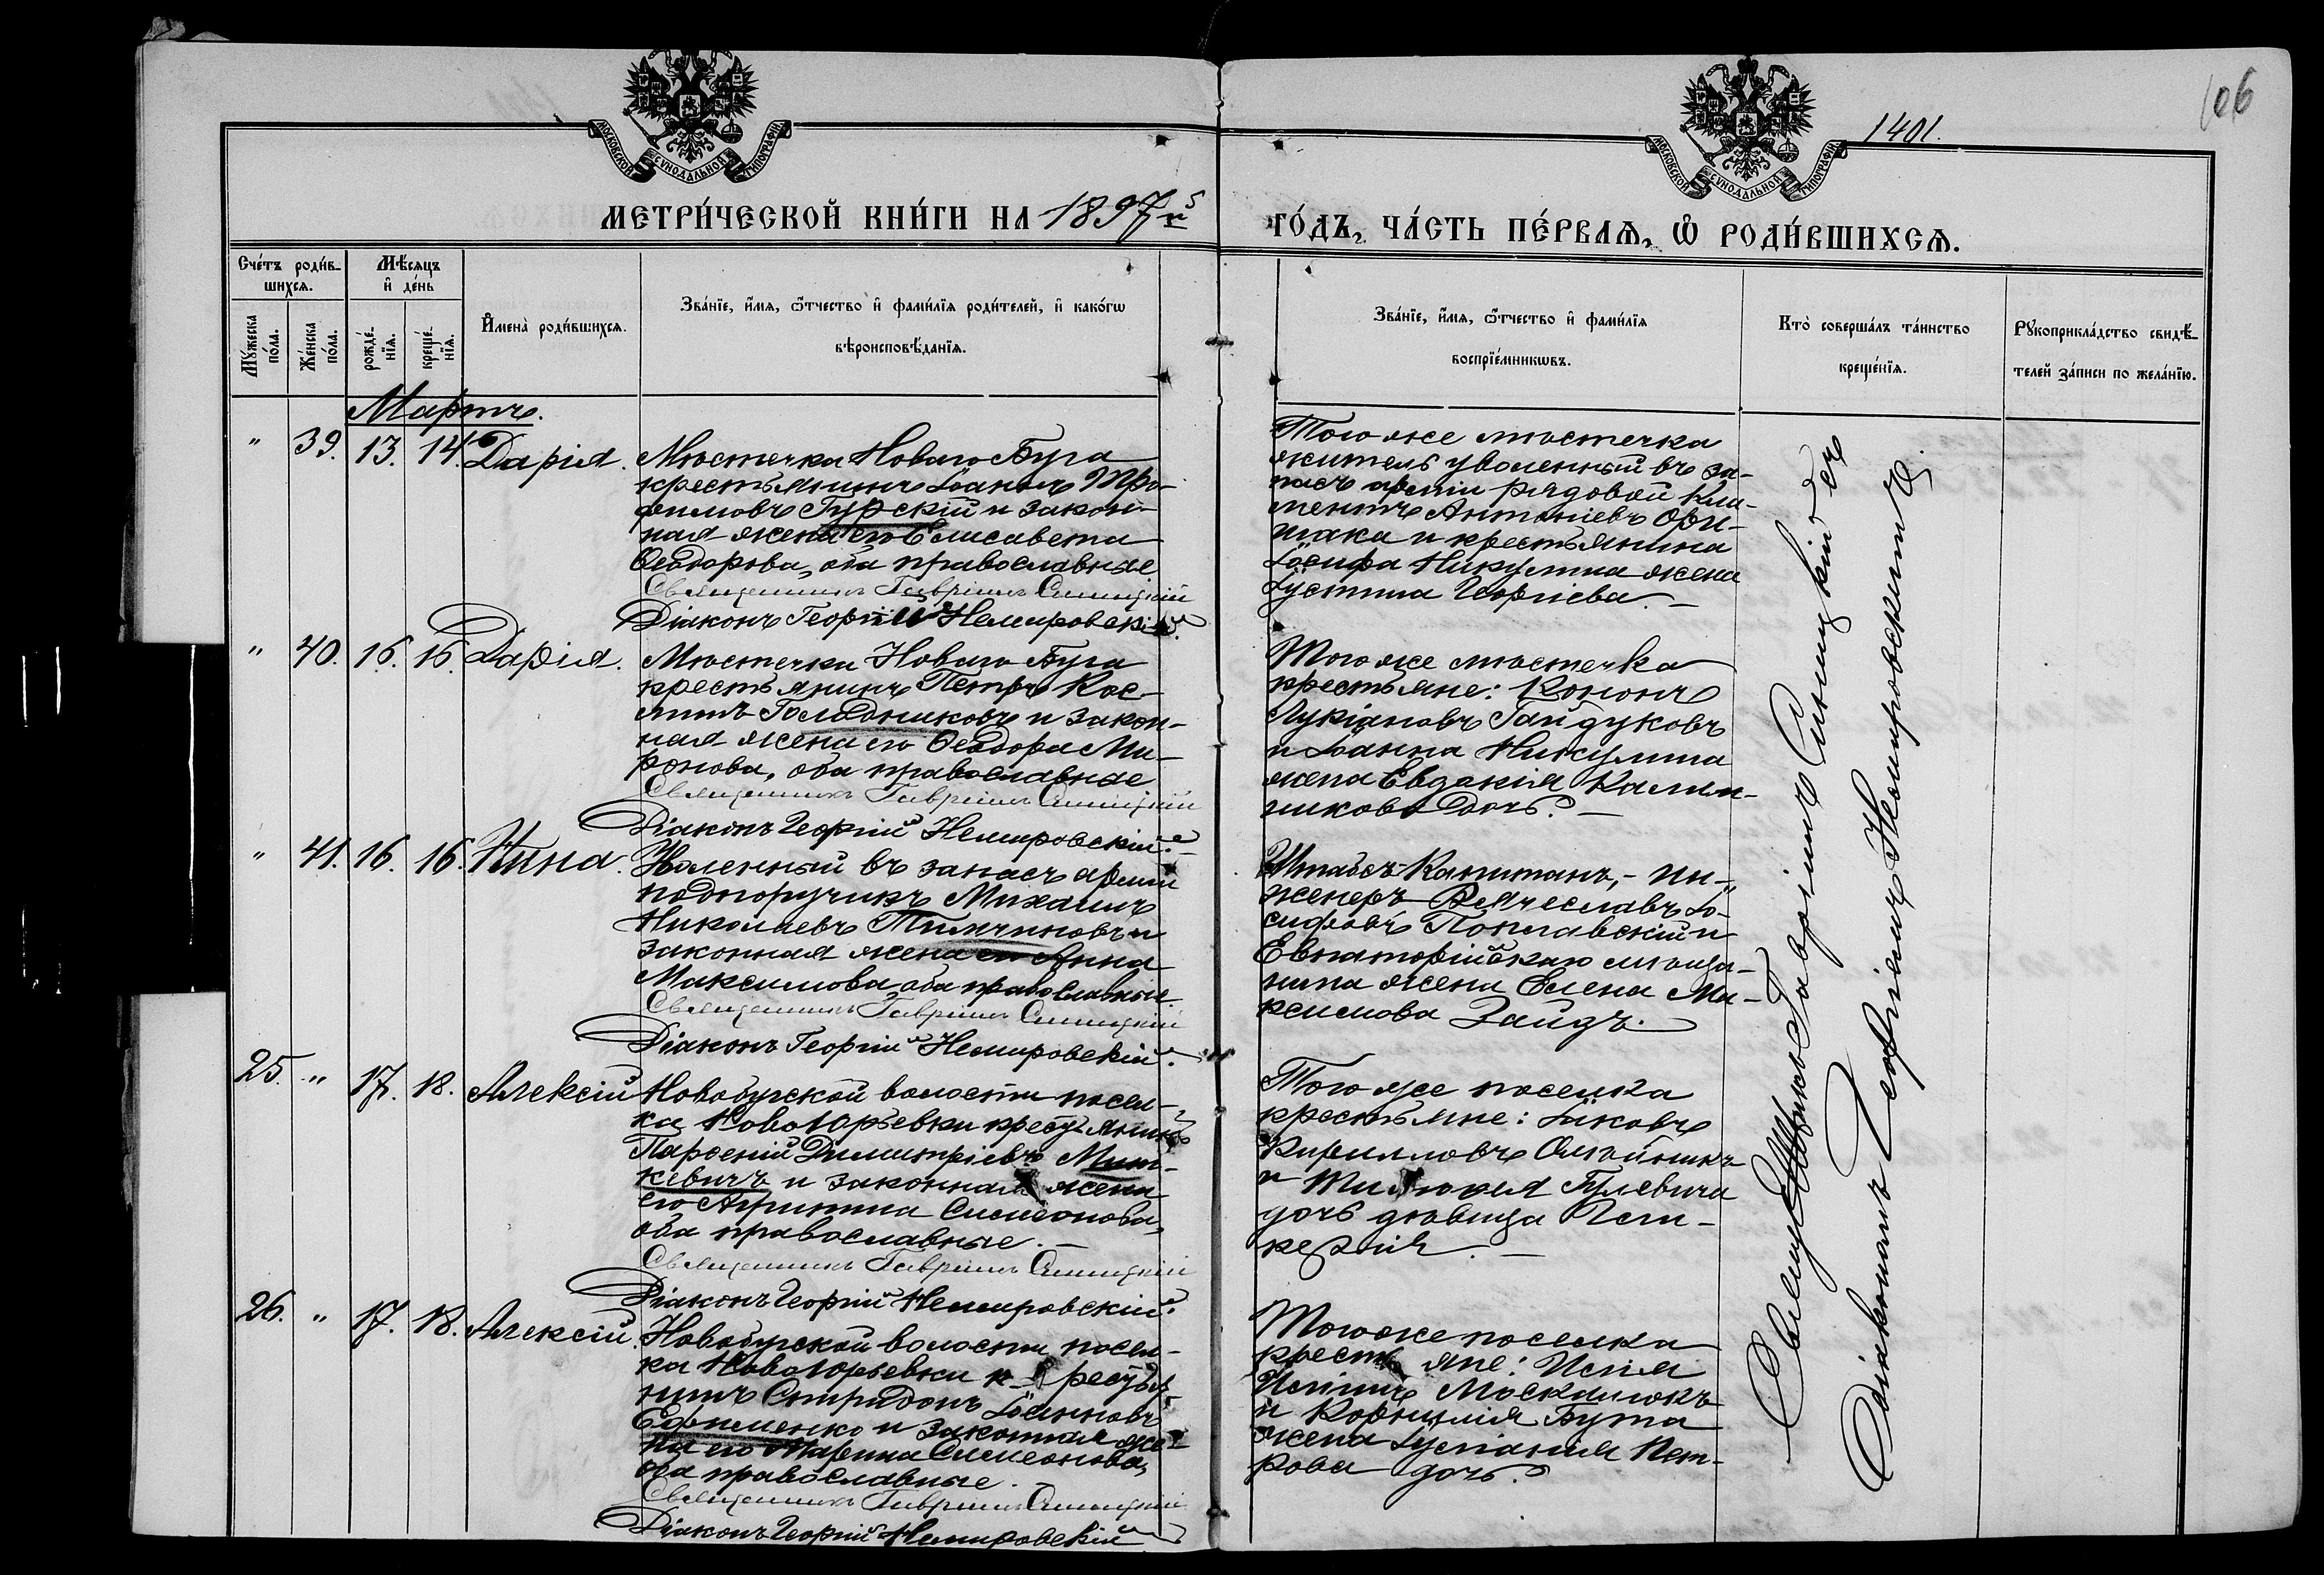 106
1401.
МОСКОВСКОЙ СѴНОДАЛЬНОЙ ТИПОГРАФІИ
МОСКОВСКОЙ СѴНОДАЛЬНОЙ ТИПОГРАФІИ
МЕТРИ́ЧЕСКОЙ КНИ́ГИ НА 1897й
ГО́ДЪ, ЧА́СТЬ ПЕ́РВАѦ, Ѽ РОДИ́ВШИХСѦ.
Сче́тъ роди́в-
шихсѧ.
Мѣ́сѧцъ
и҆ де́нь
Мꙋ́жеска
по́ла.
Же́нска
по́ла.
рожде́-
нїѧ.
креще́-
нїѧ.
И҆мена̀ роди́вшихсѧ.
Зва́нїе, и҆́мѧ, ѻ҆́тчество и҆ фами́лїѧ роди́телей, и҆ како́гѡ
вѣроисповѣ́данїѧ.
Зва́нїе, и҆́мѧ, ѻ҆́тчество и҆ фами́лїѧ
воспрїе́мникѡвъ.
Кто̀ соверша́лъ та́инство
креще́нїѧ.
Рꙋкоприкла́дство свидѣ́-
телей за́писи по жела́нїю.
Мартъ.
" 39. 13. 14. Дарія.
Мѣстечка Новаго Буга
крестьянинъ Іоаннъ Тро-
фимовъ Гурскій и закон-
ная жена его Елисавета
Ѳеодорова, оба православные
Священникъ Гавріилъ Синицкій
Діаконъ Георгій Немировскій.
Того же мѣстечка
житель уволенный въ за-
пасъ арміи рядовой Кли-
ментъ Антоніевъ Ори-
щака и крестьянина
Іосифа Никулина жена
Іустина Георгіева.
" 40. 16. 16. Дарія.
Мѣстечка Новаго Буга
крестьянинъ Петръ Кос-
минъ Голодниковъ и закон-
ная жена его Ѳеодора Ми-
ронова, оба православные
Священникъ Гавріилъ Синицкій
Діаконъ Георгій Немировскій.
Того же мѣстечка
крестьяне: Кононъ
Лукіановъ Гайдуковъ
и Іоанна Никулина
жена Евдокія Калин-
никова дочь.
" 41. 16. 16. Нина.
Уволенный въ запасъ арміи
подпоручикъ Михаилъ
Николаевъ Тимчиновъ и
законная жена его Анна
Максимова, оба православные.
Священникъ Гавріилъ Синицкій
Діаконъ Георгій Немировскій.
Штабсъ-Капитанъ,- ин-
женеръ Вячеславъ Іо-
сифовъ Поплавскій и
Евпаторійскаго мѣща-
нина жена Елена Ма-
ксимова Зайдъ.
25. " 17. 18. Алексій
Новобугской волости посел-
ка Новоюрьевки крестьянинъ
Парѳеній Димитріевъ Миш-
кевичъ и законная жена
его Агрипина Симеонова,
оба православные.
Священникъ Гавріилъ Синицкій
Діаконъ Георгій Немировскій.
Того же поселка
крестьяне: Іаковъ
Кирилловъ Олейникъ
и Гулевича
дочь дѣвица
26. " 17. 18. Алексій.
Новобугской волости посел-
ка Новоюрьевки крестья-
нинъ Спиридонъ Іоанновъ
Ефименко и законная же-
на его Марина Симеонова,
оба православные.
Священникъ Гавріилъ Синицкій
Діаконъ Георгій Немировскій
Того же поселка
крестьяне: Исаія
Москалюкъ
и Корнилія Бута
жена Іуліанія Пет-
рова дочь.
Священникъ Гавріилъ Синицкій съ
Діакономъ Георгіемъ Немировскимъ.